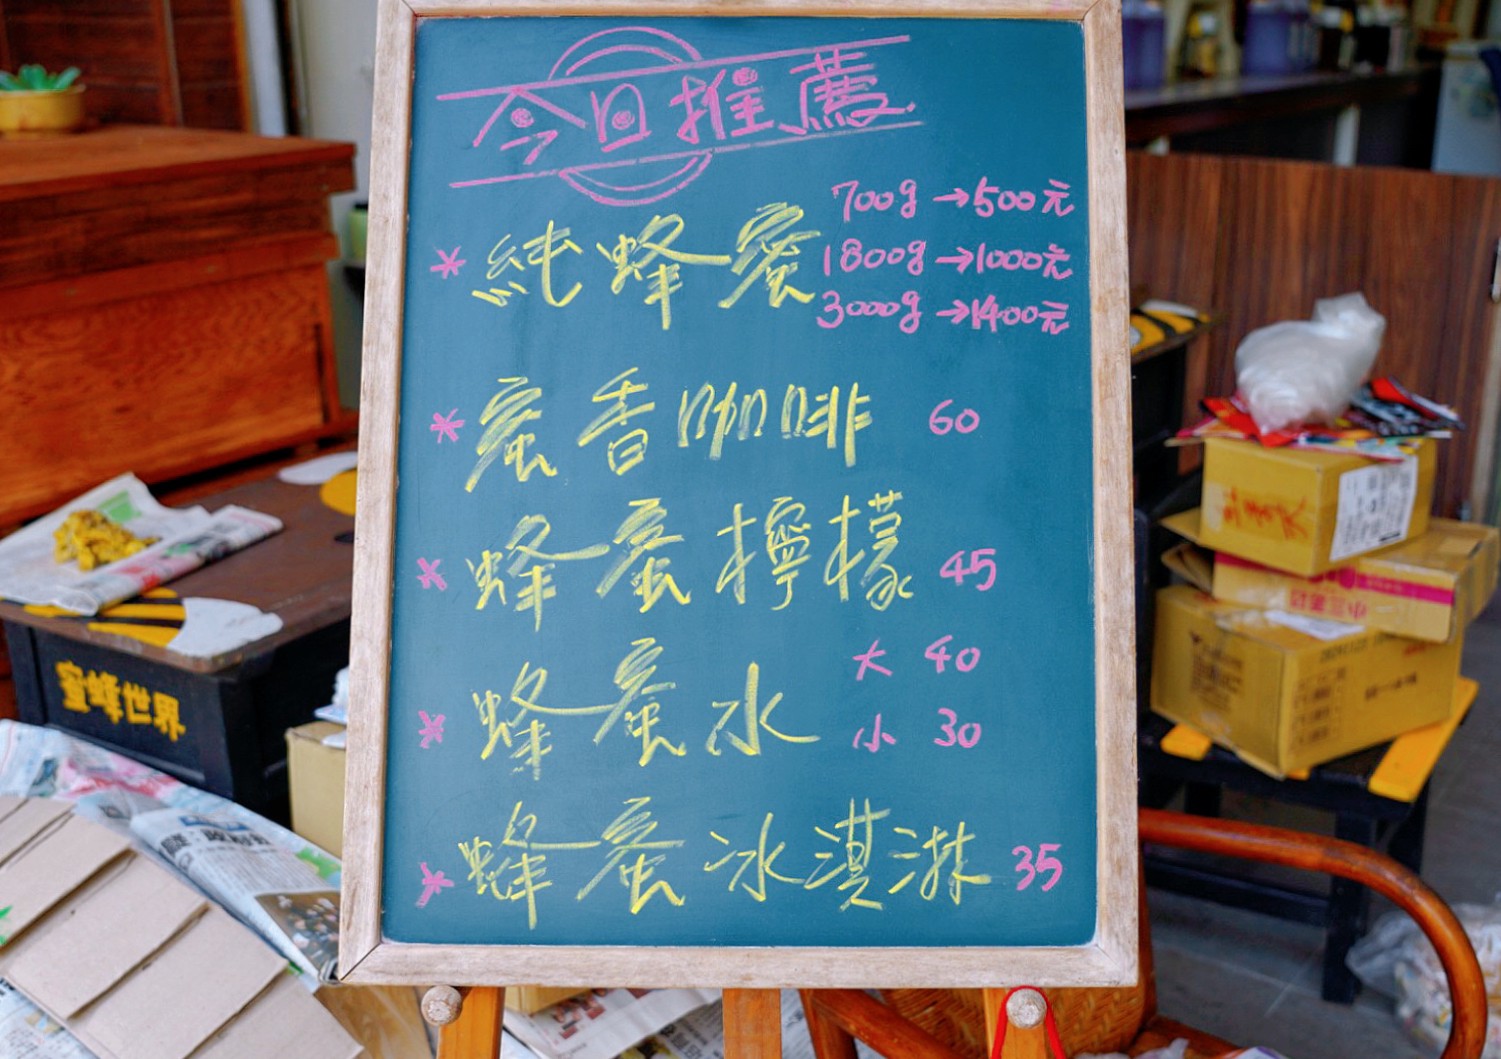 今日推薦
* 純蜂蜜
700g →500元
1800g →1000元
3000g →1400元
* 蜜香咖啡 60
* 蜂蜜檸檬 45
* 蜂蜜水
大 40
小 30
* 蜂蜜冰淇淋 35
蜜蜂世界